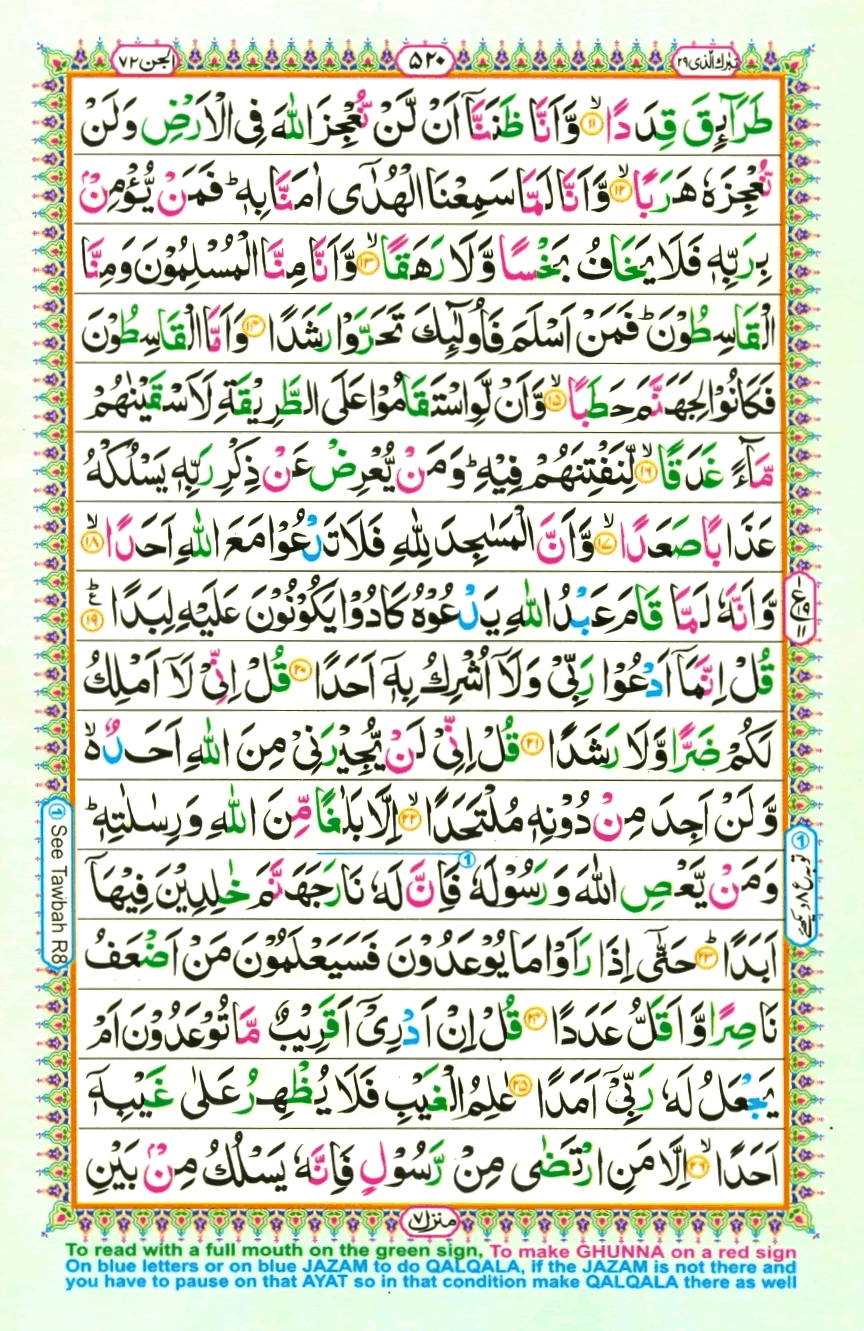 تبٰرك الّذی ۲۹
۵۲۰
الجن ۷۲
طَرَآىِٕقَ قِدَدًا ۙ﴿۱۱﴾ وَّاَنَّا ظَنَنَّاۤ اَنْ لَّنْ نُّعْجِزَ اللّٰهَ فِی الْاَرْضِ وَلَنْ
نُّعْجِزَهٗ هَرَبًا ۙ﴿۱۲﴾ وَّاَنَّا لَمَّا سَمِعْنَا الْهُدٰۤی اٰمَنَّا بِهٖ ؕ فَمَنْ یُّؤْمِنْۢ
بِرَبِّهٖ فَلَا یَخَافُ بَخْسًا وَّلَا رَهَقًا ۙ﴿۱۳﴾ وَّاَنَّا مِنَّا الْمُسْلِمُوْنَ وَمِنَّا
الْقَاسِطُوْنَ ؕ فَمَنْ اَسْلَمَ فَاُولٰٓىِٕكَ تَحَرَّوْا رَشَدًا ﴿۱۴﴾ وَاَمَّا الْقَاسِطُوْنَ
فَكَانُوْا لِجَهَنَّمَ حَطَبًا ۙ﴿۱۵﴾ وَّاَنْ لَّوِ اسْتَقَامُوْا عَلَی الطَّرِیْقَةِ لَاَسْقَیْنٰهُمْ
مَّآءً غَدَقًا ۙ﴿۱۶﴾ لِّنَفْتِنَهُمْ فِیْهِ ؕ وَمَنْ یُّعْرِضْ عَنْ ذِكْرِ رَبِّهٖ یَسْلُكْهُ
عَذَابًا صَعَدًا ۙ﴿۱۷﴾ وَّاَنَّ الْمَسٰجِدَ لِلّٰهِ فَلَا تَدْعُوْا مَعَ اللّٰهِ اَحَدًا ۙ﴿۱۸﴾
وَّاَنَّهٗ لَمَّا قَامَ عَبْدُ اللّٰهِ یَدْعُوْهُ كَادُوْا یَكُوْنُوْنَ عَلَیْهِ لِبَدًا ؕ۠﴿۱۹﴾
قُلْ اِنَّمَاۤ اَدْعُوْا رَبِّیْ وَلَاۤ اُشْرِكُ بِهٖۤ اَحَدًا ﴿۲۰﴾ قُلْ اِنِّیْ لَاۤ اَمْلِكُ
لَكُمْ ضَرًّا وَّلَا رَشَدًا ﴿۲۱﴾ قُلْ اِنِّیْ لَنْ یُّجِیْرَنِیْ مِنَ اللّٰهِ اَحَدٌ ۙ۬
وَّلَنْ اَجِدَ مِنْ دُوْنِهٖ مُلْتَحَدًا ۙ﴿۲۲﴾ اِلَّا بَلٰغًا مِّنَ اللّٰهِ وَرِسٰلٰتِهٖ ؕ
وَمَنْ یَّعْصِ اللّٰهَ وَرَسُوْلَهٗ فَاِنَّ لَهٗ نَارَ جَهَنَّمَ خٰلِدِیْنَ فِیْهَاۤ
اَبَدًا ؕ﴿۲۳﴾ حَتّٰۤی اِذَا رَاَوْا مَا یُوْعَدُوْنَ فَسَیَعْلَمُوْنَ مَنْ اَضْعَفُ
نَاصِرًا وَّاَقَلُّ عَدَدًا ﴿۲۴﴾ قُلْ اِنْ اَدْرِیْۤ اَقَرِیْبٌ مَّا تُوْعَدُوْنَ اَمْ
یَجْعَلُ لَهٗ رَبِّیْۤ اَمَدًا ﴿۲۵﴾ عٰلِمُ الْغَیْبِ فَلَا یُظْهِرُ عَلٰی غَیْبِهٖۤ
اَحَدًا ۙ﴿۲۶﴾ اِلَّا مَنِ ارْتَضٰی مِنْ رَّسُوْلٍ فَاِنَّهٗ یَسْلُكُ مِنْۢ بَیْنِ
ع
۱۹
۱۱
① See Tawbah R8
منزل ۷
To read with a full mouth on the green sign, To make GHUNNA on a red sign
On blue letters or on blue JAZAM to do QALQALA, if the JAZAM is not there and
you have to pause on that AYAT so in that condition make QALQALA there as well